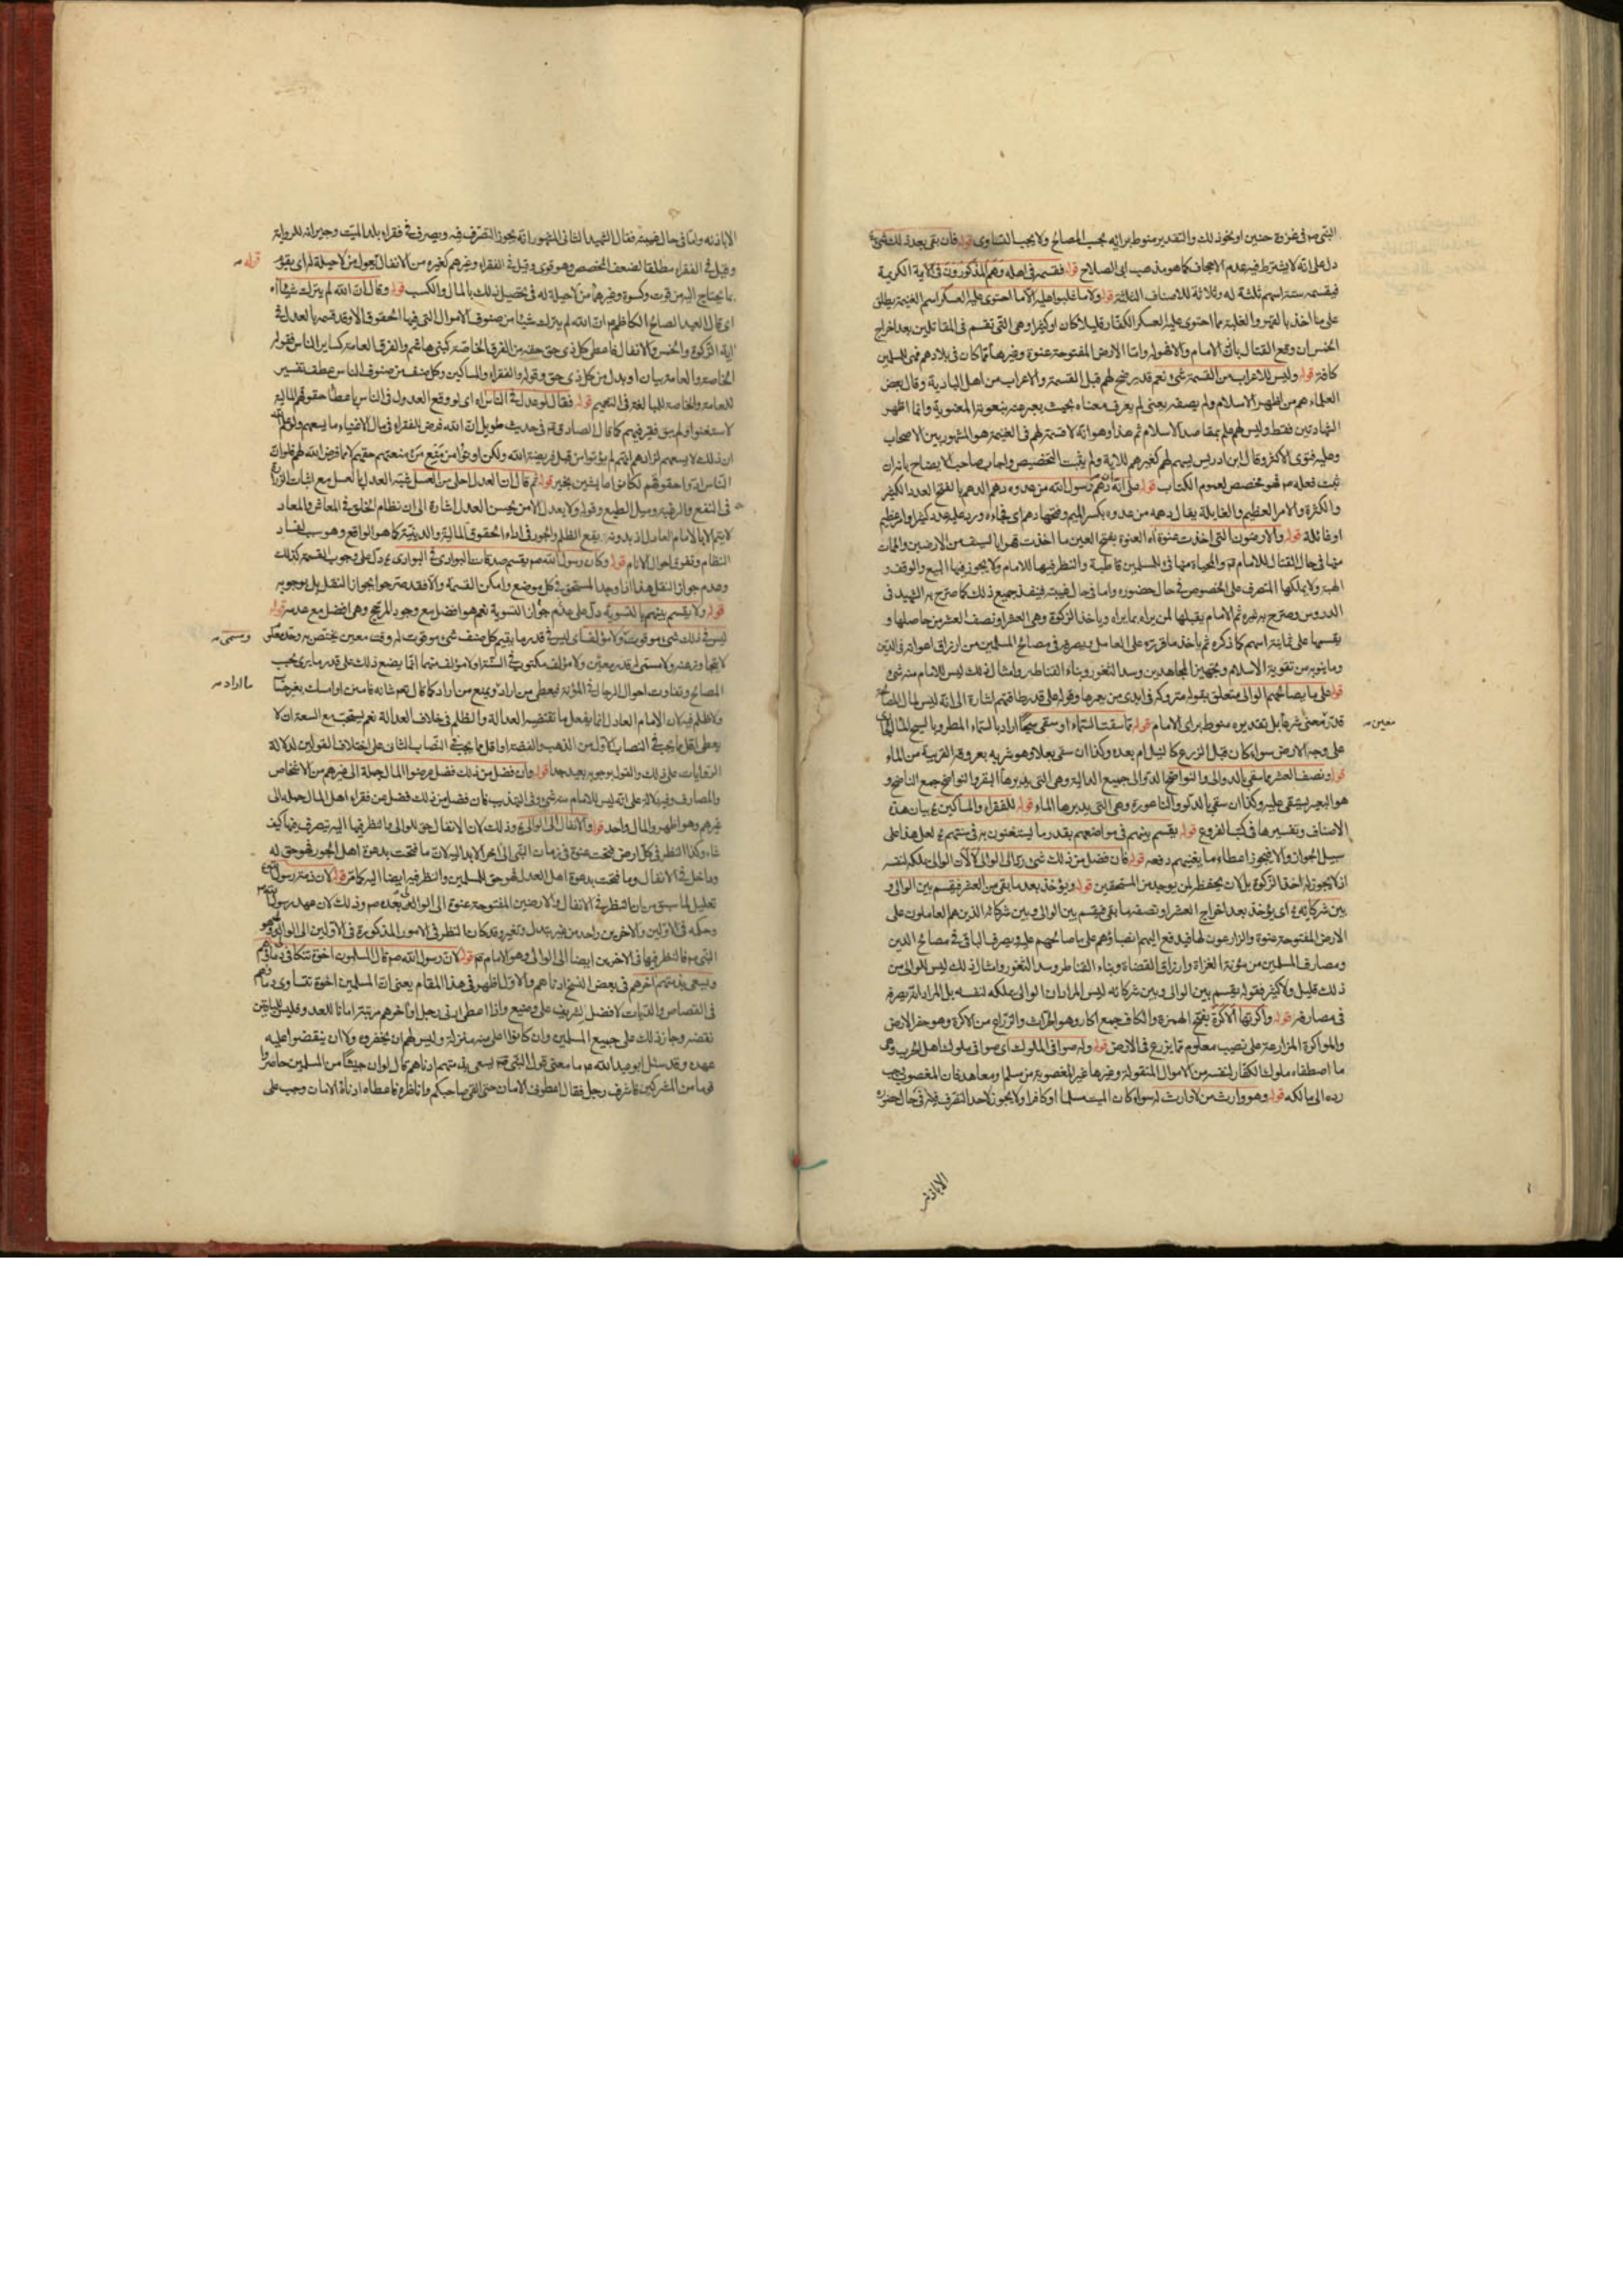 النبی ص فی غزوة حنین او نحو ذلک والتقدیر منوط برایه بحسب المصالح ولا یجب التساوی قوله فان بقی بعد ذلک شیء
دل علی انه لا یشترط فیه عدم الاجحاف کما هو مذهب ابی الصلاح قوله فقسمه فی اهله وهم المذکورون فی الآیة الکریمة
فیقسمه ستة اسهم ثلثة له وثلاثة للاصناف الثلثة قوله ولا ما غلبوا علیه الا ما احتوی علیه العسکر اسم الغنیمة یطلق
علی ما اخذ بالقهر والغلبة مما احتوی علیه العسکر الکفار قلیلا کان او کثیرا وهی التی تقسم فی المقاتلین بعد اخراج
الخمس ان وقع القتال باذن الامام والا فهو له واما الارض المفتوحة عنوة وغیرها مما کان فی بلادهم فهی للمسلمین
کافة قوله ولیس للاعراب من القسمة شیء نعم قد یرضخ لهم قبل القسمة والاعراب من اهل البادیة وقال بعض
العلماء هم من اظهر الاسلام ولم یصفه یعنی لم یعرف معناه بحیث یعبر عنه بنعوته المعنویة وانما اظهر
الشهادتین فقط ولیس لهم علم بمقاصد الاسلام ثم هذا وهو انه لا قسمة لهم فی الغنیمة هو المشهور بین الاصحاب
وعلیه فتوی الاکثر وقال ابن ادریس یسهم لهم کغیرهم للآیة ولم یثبت التخصیص واجاب صاحب الایضاح بانه ان
ثبت فعله ص فهو مخصص لعموم الکتاب قوله علی انه ان دهم رسول الله من عدوه دهم الدهم بالفتح العدد الکثیر
والکثرة والامر العظیم والغایلة یقال دهمه من عدوه بکسر المیم وفتحها دهم ای فجاءه ورد علیه عدد کثیر او امر عظیم
او غائلة قوله والارضون التی اخذت عنوة اه العنوة بفتح العین ما اخذت قهرا بالسیف من الارضین والموات
منها فی حال القتال للامام ع والمحیاة منها فیء للمسلمین قاطبة والنظر فیها للامام ولا یجوز فیها البیع والوقف و
الهبة ولا یملکها المتصرف علی الخصوص فی حال حضوره واما فی حال غیبته فینفذ جمیع ذلک کما صرح به الشهید فی
الدروس وصرح به غیره ثم الامام یقبلها لمن یراه بما یراه ویاخذ الزکوة وهی العشر او نصف العشر من حاصلها و
یقسمها علی ثمانیة اسهم کما ذکره ثم یاخذ ما قرره علی العامل ویصرفه فی مصالح المسلمین من ارزاق اعوانه فی الدین
وما ینوبه من تقویة الاسلام وتجهیز المجاهدین وسد الثغور وبناء القناطر وامثال ذلک لیس للامام منه شیء
قوله علی ما یصالحهم الوالی متعلق بقوله متروکة فی ایدی من یعمرها وقوله علی قدر طاقتهم اشارة الی انه لیس لمال المصالحة
قدر معین شرعا بل تقدیره منوط برای الامام قوله مما سقت السماء او سقی سیحا اراد بالسماء المطر وبالسیح الماء الجاری
علی وجه الارض سواء کان قبل الزرع کالنیل ام بعده وکذا ان سقی بعلا وهو شربه بعروقه القریبة من الماء
قوله ونصف العشر مما سقی بالدوالی والنواضح الدوالی جمیع الدالیة وهی التی یدیرها البقر والنواضح جمع الناضح و
هو البعیر یستقی علیه وکذا ان سقی بالدلو والناعورة وهی التی یدیرها الماء قوله للفقراء والمساکین ع بیان هذه
الاصناف وتفسیرها فی کتب الفروع قوله یقسم بینهم فی مواضعهم بقدر ما یستغنون به فی سنتهم ع لعل هذا علی
سبیل الجواز والا فیجوز اعطاء ما یغنیهم دفعة قوله فان فضل من ذلک شیء رد الی الوالی لا لان الوالی یملکه لنفسه
اذ لا یجوز له اخذ الزکوة بل لان یحفظه لمن یوجد من المستحقین قوله ویؤخذ بعد ما بقی من العشر فیقسم بین الوالی و
بین شرکائه ع ای یؤخذ بعد اخراج العشر او نصفها بقی فیقسم بین الوالی وبین شرکائه الذین هم العاملون علی
الارض المفتوحة عنوة والزارعون لها فیدفع الیهم انصباؤهم علی ما صالحهم علیه ویصرف الباقی فی مصالح الدین
ومصارف المسلمین من مؤنة الغزاة وارزاق القضاة وبناء القناطر وسد الثغور وامثال ذلک لیس للوالی من
ذلک قلیل ولا کثیر فقوله یقسم بین الوالی وبین شرکائه لیس المراد ان الوالی یملکه لنفسه بل المراد انه یصرفه
فی مصارفه قوله واکرتها الاکرة بفتح الهمزة والکاف جمع اکار وهو الحراث والزراع من الاکرة وهو حفر الارض
والمواکرة المزارعة علی نصیب معلوم مما یزرع فی الارض قوله وله صوافی الملوک ای صوافی ملوک اهل الحرب وهی
ما اصطفاه ملوک الکفار لنفسه من الاموال المنقولة وغیرها غیر المغصوبة من مسلم او معاهد فان المغصوب یجب
رده الی مالکه قوله وهو وارث من لا وارث له سواء کان المیت مسلما او کافرا ولا یجوز لاحد التصرف فیه فی حال حضوره
معین
الا باذنه
الا باذنه واما فی حال غیبته فقال الشهید الثانی المشهور انه یجوز التصرف فیه ویصرف فی فقراء بلد المیت وجیرانه للروایة
وقیل فی الفقراء مطلقا لضعف المخصص وهو قوی وقیل فی الفقراء وغیرهم کغیره من الانفال یعول من لا حیلة له ای یقوم
بما یحتاج الیه من قوت وکسوة وغیرها من لا حیلة له فی تحصیل ذلک بالمال والکسب قوله وقال ان الله لم یترک شیئا اه
ای قال العبد الصالح الکاظم ع ان الله لم یترک شیئا من صنوف الاموال التی فیها الحقوق الا وقد قسمه بالعدل فی
آیة الزکوة والخمس والانفال فاعطی کل ذی حق حقه من الفرق الخاصة کبنی هاشم والفرق العامة کسایر الناس فقوله
الخاصة والعامة بیان او بدل من کل ذی حق وقوله والفقراء والمساکین وکل صنف من صنوف الناس عطف تفسیر
للعامة والخاصة للمبالغة فی التعمیم قوله فقال لو عدل فی الناس اه ای لو وقع العدول فی الناس باعطاء حقوقهم المالیة
لاستغنوا ولم یبق فقیر فیهم کما قال الصادق ع فی حدیث طویل ان الله فرض للفقراء فی مال الاغنیاء ما یسعهم ولو علم
ان ذلک لا یسعهم لزادهم انهم لم یؤتوا من قبل فریضة الله ولکن اوتوا من منع من منعهم حقهم لا مما فرض الله لهم فلو ان
الناس ادوا حقوقهم لکانوا عایشین بخیر قوله ثم قال ان العدل احلی من العسل شبه العدل بالعسل مع اثبات الزیادة
فی النفع والرغبة ومیل الطبع وقوله ولا یعدل الا من یحسن العدل اشارة الی ان نظام الخلق فی المعاش والمعاد
لا یتم الا بالامام العادل اذ بدونه یقع الظلم والجور فی اداء الحقوق المالیة والدینیة کما هو الواقع وهو سبب لفساد
النظام وتفرق احوال الانام قوله وکان رسول الله ص یقسم صدقات البوادی فی البوادی ع دل علی وجوب القسمة کذلک
وعدم جواز النقل هذا اذا وجد المستحق فی کل موضع وامکن القسمة والا فقد صرحوا بجواز النقل بل بوجوبه
قوله ولا یقسم بینهم بالسویة دل علی عدم جواز التسویة نعم هو افضل مع وجود المرجح وهی افضل مع عدمه قوله
لیس فی ذلک شیء موقوت ولا مؤلف ای لیس فی قدر ما یقیم کل صنف شیء موقوت له وقت معین یختص به وحد معلوم
لا یتجاوز عنه ولا مسمی له قدر معین ولا مؤلف مکتوب فی السنة او لا مؤلف منهما انما یضع ذلک علی قدر ما یری بحسب
المصالح وتفاوت احوال الرجال فی المؤنة فیعطی من اراد ویمنع من اراد کما کال نعم شانه فامنن او امسک بغیر حساب
ولا ظلم فیه لان الامام العادل انما یفعل ما تقتضیه العدالة والظلم فی خلاف العدالة نعم یستحب مع السعة ان لا
یعطی اقل ما یجب فی النصاب الاول من الذهب والفضة او اقل ما یجب فی النصاب الثانی علی اختلاف القولین لدلالة
الروایات علی ذلک والقول بوجوبه بعید جدا قوله وان فضل من ذلک فضل عرضوا المال جملة الی غیرهم من الاشخاص
والمصارف وفیه دلالة علی انه لیس للامام منه شیء وفی التهذیب فان فضل من ذلک فضل عن فقراء اهل المال حمله الی
غیرهم وهو اظهر والمال واحد قوله والانفال الی الوالی ع وذلک لان الانفال حق للوالی والنظر فیها الیه یتصرف فیها کیف
شاء وکذا النظر فی کل ارض فتحت عنوة فی زمان النبی الی آخر الابد الا ان ما فتحت بدعوة اهل الجور فهو حق له
وداخل فی الانفال وما فتحت بدعوة اهل العدل فهو حق للمسلمین والنظر فیه ایضا الیه کما مر قوله لان ذمة رسول الله
تعلیل لما سبق من بیان النظر فی الانفال والارضین المفتوحة عنوة الی الوالی بعده ص وذلک لان عهد رسول الله
وحکمه فی الاولین والآخرین واحد من غیر تبدل وتغیر وقد کان النظر فی الامور المذکورة فی الاولین الی الوالی وهو
النبی ص فالنظر فیها فی الآخرین ایضا الی الوالی وهو الامام ع قوله لان رسول الله ص قال المسلمون اخوة تتکافی دماؤهم
ویسعی بذمتهم آخرهم فی بعض النسخ ادناهم والاول اظهر فی هذا المقام یعنی ان المسلمین اخوة تتساوی دماؤهم
فی القصاص والدیات لا فضل لشریف علی وضیع واذا اعطی ادنی رجل او آخرهم مرتبة امانا للعدو فلیس للباقین
نقضه وجاز ذلک علی جمیع المسلمین وان کانوا اعلی منه منزلة ولیس لهم ان یخفروه ولا ان ینقضوا علیه
عهده وقد سئل ابو عبد الله ع ما معنی قول النبی ص یسعی بذمتهم ادناهم قال لو ان جیشا من المسلمین حاصروا
قوما من المشرکین فاشرف رجل فقال اعطونی الامان حتی القی صاحبکم واناظره فاعطاه ادناهم الامان وجب علی
قوله
ویسمی
ما اراد